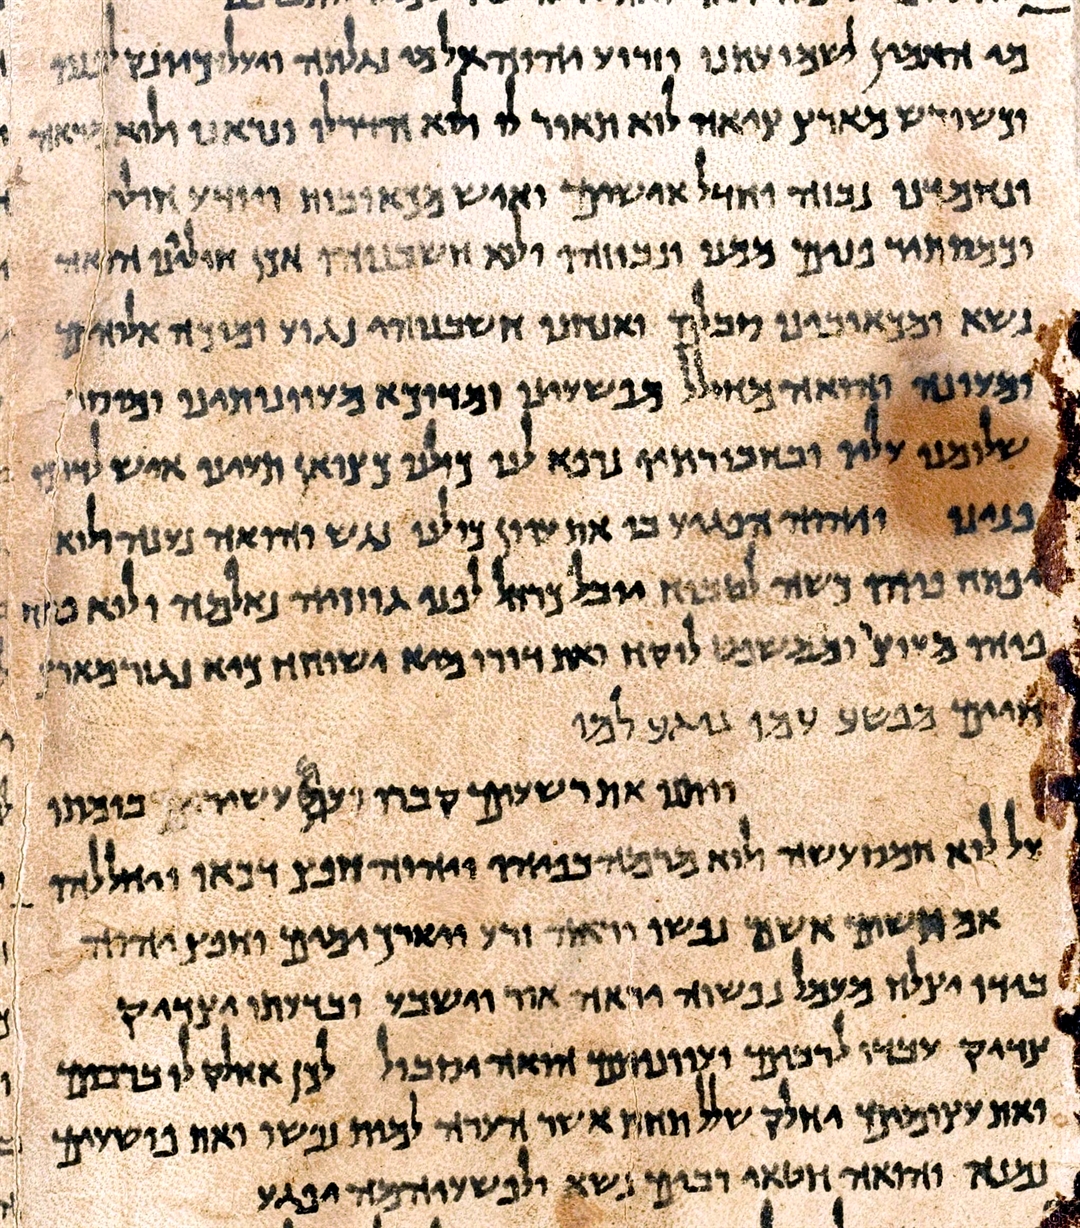 מי האמין לשמועתנו וזרוע יהוה אל מי נגלתה ויעל כיונק לפניו
וכשורש מארץ ציאה לוא תאור לו ולא הדר לו ונראנו ולוא מראה
ונחמדנו נבזה וחדל אישים ואיש מכאובות ויודע חולי
וכמסתיר פנים ממנו ונבוזהו ולא חשבנוהו אכן חוליינו הואה
נשא ומכאובינו סבלם ואנחנו חשבנוהו נגוע ומוכה אלוהים
ומעונה והואה מחולל מפשעינו ומדוכא מעוונותינו ומוסר
שלומנו עליו ובחבורתיו נרפא לנו כולנו כצואן תעינו איש לדרכו
פנינו ויהוה הפגיע בו את עוון כולנו נגש והואה נענה ולוא
יפתח פיהו כשה לטבוח יובל כרחל לפני גוזזיה נאלמה ולוא פתח
פיהו מעוצר וממשפט לוקח ואת דורו מיא ישוחח כיא נגזר מארץ
חיים מפשע עמו נוגע למו
ויתנו את רשעים קברו ועם עשירים בומתו
על לוא חמס עשה ולוא מרמה בפיהו ויהוה חפץ דכאו ויחללהו
אם תשים אשם נפשו יראה זרע ויאריך ימים וחפץ יהוה
בידו יצלח מעמל נפשוה יראה אור וישבע ובדעתו יצדיק
צדיק עבדו לרבים ועוונותם הואה יסבול לכן אחלק לו ברבים
ואת עצומים יחלק שלל תחת אשר הערה למות נפשו ואת פושעים
נמנא והואה חטאי רבים נשא ולפשעיהמה יפגע